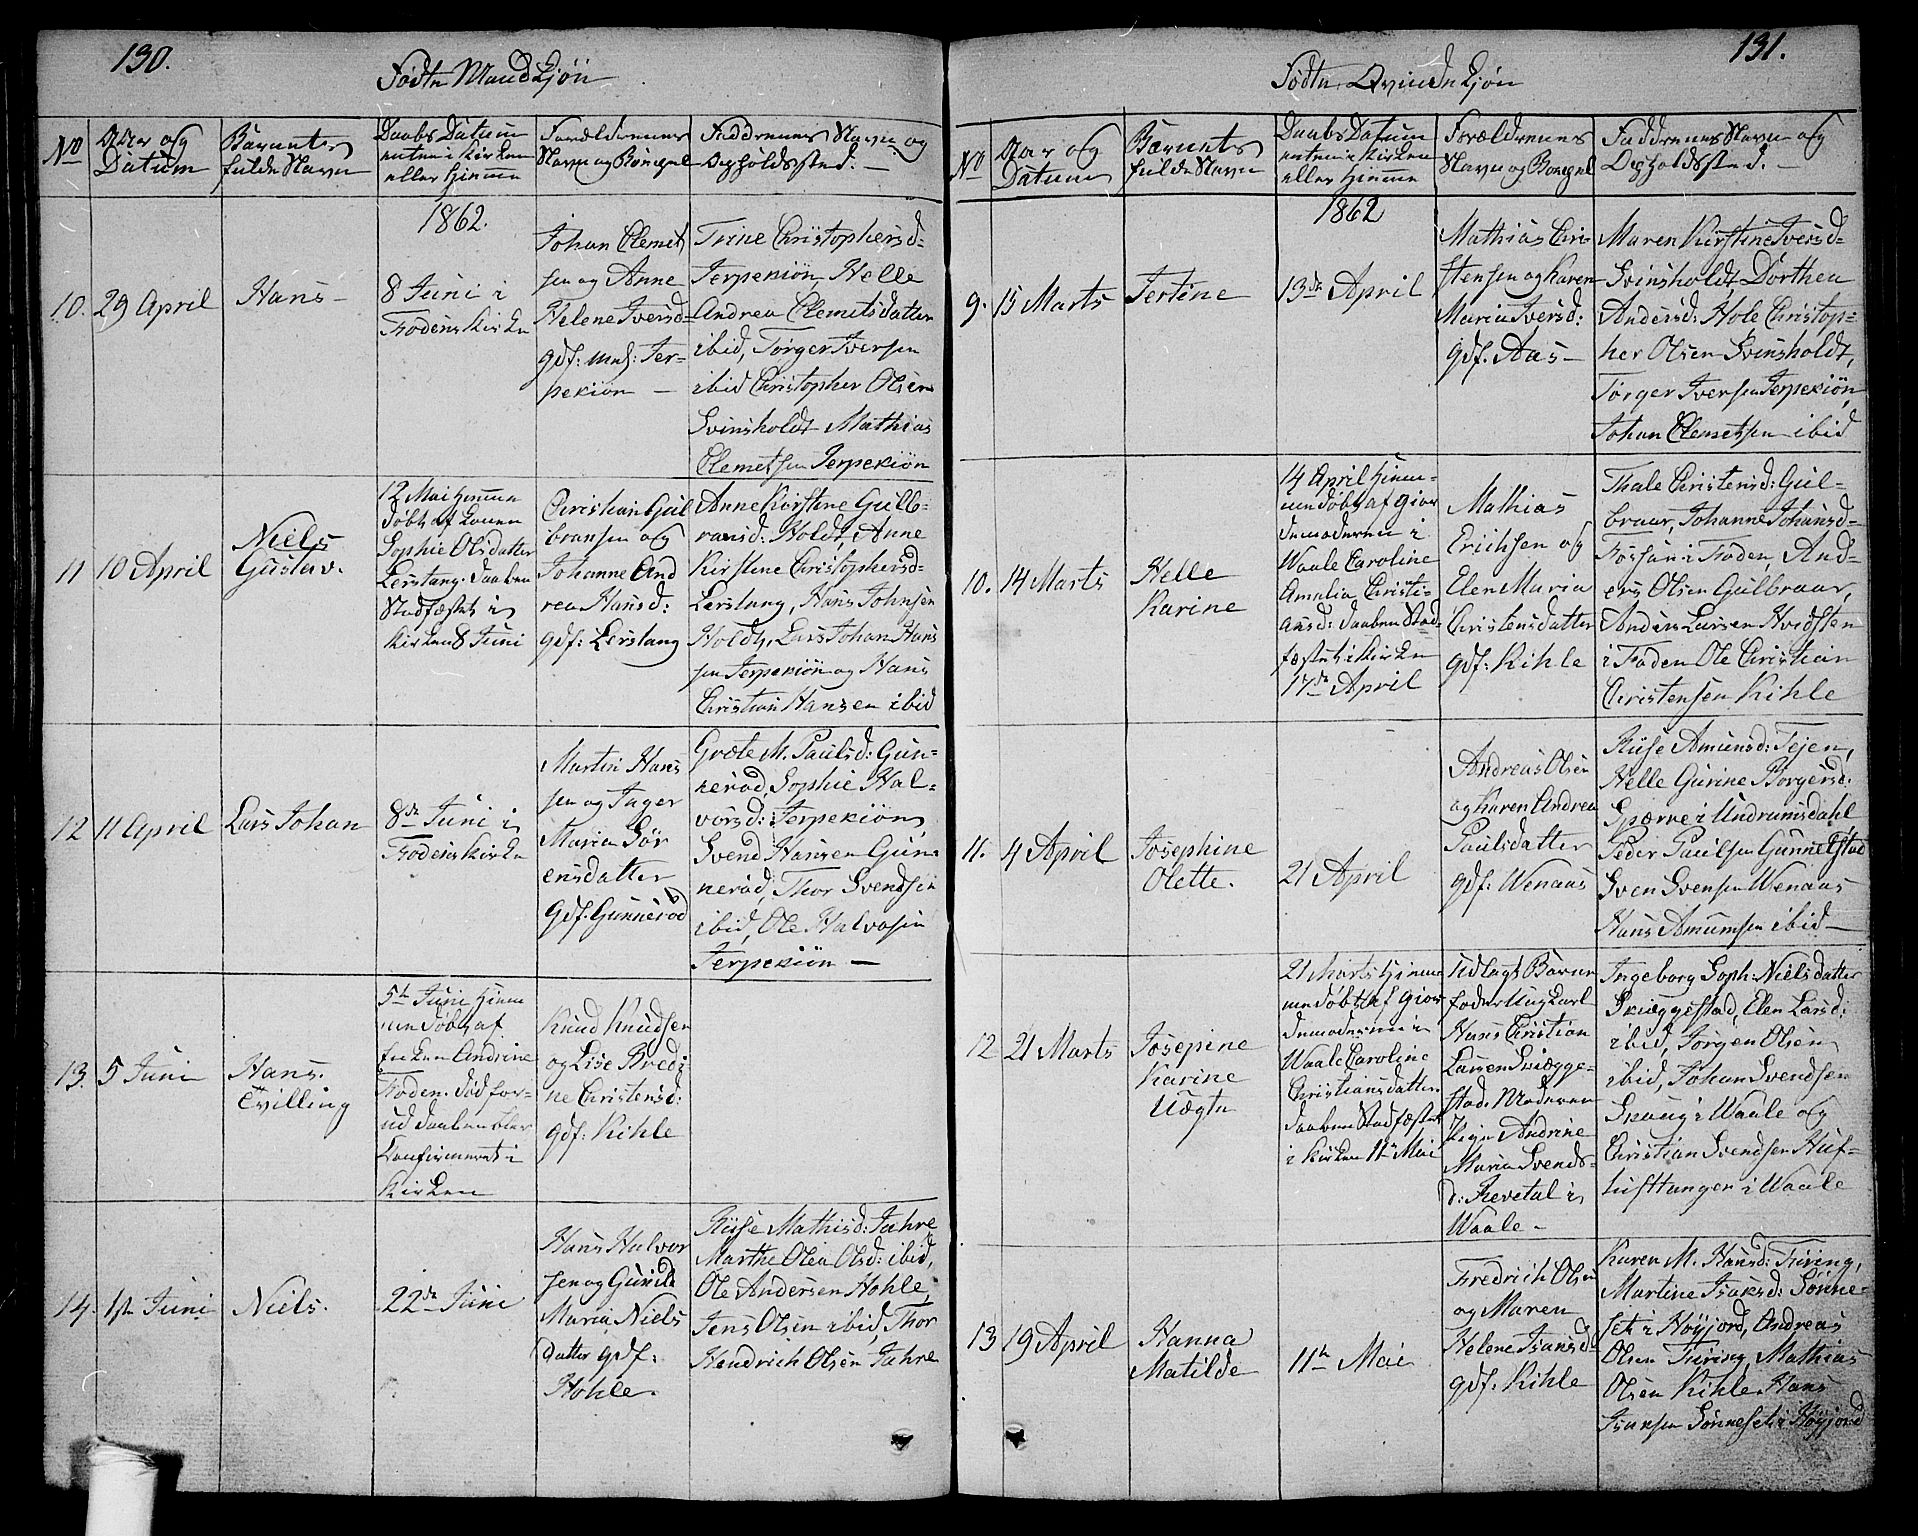 130.
Fødte Mandkjøn
No
Aar og
Datum
Barnets
fulde Navn
Daabs Datum
enten i Kirken
eller hjemme
Forældrenes
Navn og Borgel
Faddrenes Navn og
Opholdssted. –
1862.
10.
29 April
Hans –
8 Juni i
Fodens Kirke
Johan Clemet
sen og Anne
Helene Iversd–
gdf: mns: Jer–
pekiøn –
Trine Christophersd–
Jerpekiøn, Helle
Andrea Clemetsdatter
ibid, Törger Iversen
ibid Christopher Olsen
Svinsholdt Mathias
Clemetsen Jerpekiøn
11
10 April
Niels
Gustav.
12 Mai hjemme
døbt af Konen
Sophie Olsdatter
Lerstang. Daaben
Stadfæstet i
Kirken 8 Juni
Christian Gul
bransen og
Johanne And
rea Hansd:
gdf: Lerstang
Anne Kirstine Gulb–
ransd: Holdt, Anne
Kirstine Christophersd–
Lerstang, Hans Johnsen
Holdt, Lars Johan Hans
sen Jerpekiøn og Hans
Christian Hansen ibid
12
11 April
Lars Johan
8de Juni i
Fodens Kirke
Martin Hans
sen og Inger
Maria Sør
ensdatter
gdf. Gunnerød
Grete M. Paulsd: Gun–
nerød, Sophie Hal–
vorsd: Jerpekiøn,
Svend Hansen Gun–
nerød, Thor Svendsen
ibid, Ole Halvosen
Jerpekiøn –
13.
5 Juni
Hans.
Tvilling
5te Juni hjem
me døbt af
Andrine
Foden. Død for–
ud Daaben blev
Konfirmeret i
Kirken
Knud Knudsen
og Lise Bredi
ne Christensd:
gdf: Kihle
14.
1ste Juni
Niels.
22de Juni
Hans Halvor
sen og Gunild
Maria Niels
datter gdf:
Hohle.
Risse Mathisd: Jahre
Marthe Olea Olsd: ibid,
Ole Andersen Hohle,
Jens Olsen ibid, Thor
Hendrich Olsen Jahre
131.
Fødte Qvindekjøn
No
Aar og
Datum
Barnets
fulde Navn
Daabs Datum
enten i Kirken
eller hjemme
Forældrenes
Navn og Boregel
Faddrenes Navn og
Opholdssted. –
1862
9.
15 Marts
Tertine
13de April
Mathias Chri
stensen og Karen
Maria Iversd:
gdf. Aas –
Maren Kirstine Iversd–
Svinsholdt, Dorthea
Andersd: Hole Christop–
her Olsen Svinsholdt,
Törger Iversen Jerpekiøn,
Johan Clemetsen ibid
10.
14 Marts
Helle
Karine
14 April hjem–
me døbt af Gior
demoderen i
Waale Caroline
Amalia Christi–
ansd: Daaben Stad–
fæstet i Kirken
17de April
Mathias
Erichsen og
Elen Maria
Christensdatter
gdf: Kihle
Thale Christensd: Gul–
braar, Johanne Johansd–
Fossan i Foden, And–
ers Olsen Gulbraar,
Anders Larsen Hvidsten
i Foden Ole Christian
Christensen Kihle
11.
4 April
Josephine
Olette.
21 April
Andreas Olsen
og Karen Andrea
Paulsdatter
gdf: Wenaas
Risse Amunsd: Tejen,
Helle Gurine Borgersd:
Spærre i Undrumsdahl
Peder Paulsen Gunnelstad
Sven Svensen Wenaas
Hans Amumsen ibid –
12
21 Marts
Josepine
Karine
Uægte
21 Marts hjem
me døbt af Gior
demoderen i
Waale Caroline
Christiansdatter.
Daaben Stadfæstet
i Kirken 11te Mai
Udlagt Barne
fader Ungkarl
Hans Christian
Larsen Skiægge–
stad. Moderen
Pige Andrine
Maria Svends–
d: Revetal i
Waale –
Ingeborg Soph: Nielsdatter
Skiæggestad, Elen Larsd:
ibid, Jörgen Olsen
ibid, Johan Svendsen
Skaug i Waale og
Christian Svendsen
i Waale
13
19 April
Hanna
Matilde
11te Mai
Fredrich Olsen
og Maren
Helene Isansd
gdf: Kihle
Karen M. Hansd: Firing,
Martine Isaksd: Sønne–
set i Høyjord, Andreas
Olsen Firing, Mathias
Olsen Kihle, Hans
Isansen Sønneset i Høyjord